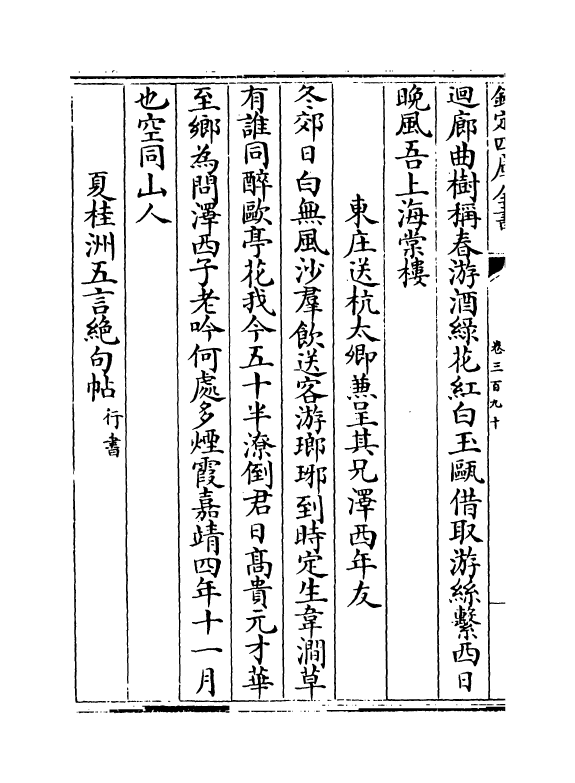 欽定四庫全書
卷三百九十
迴廊曲樹稱春游酒綠花紅白玉甌借取游絲繫西日
晩風吾上海棠樓
東庄送杭太卿兼呈其兄澤西年友
冬郊日白無風沙羣飲送客游瑯琊到時定生韋澗草
有誰同醉歐亭花我今五十半潦倒君日髙貴元才華
至鄉為問澤西子老吟何處多煙霞嘉靖四年十一月
也空同山人
夏桂洲五言絶句帖行書